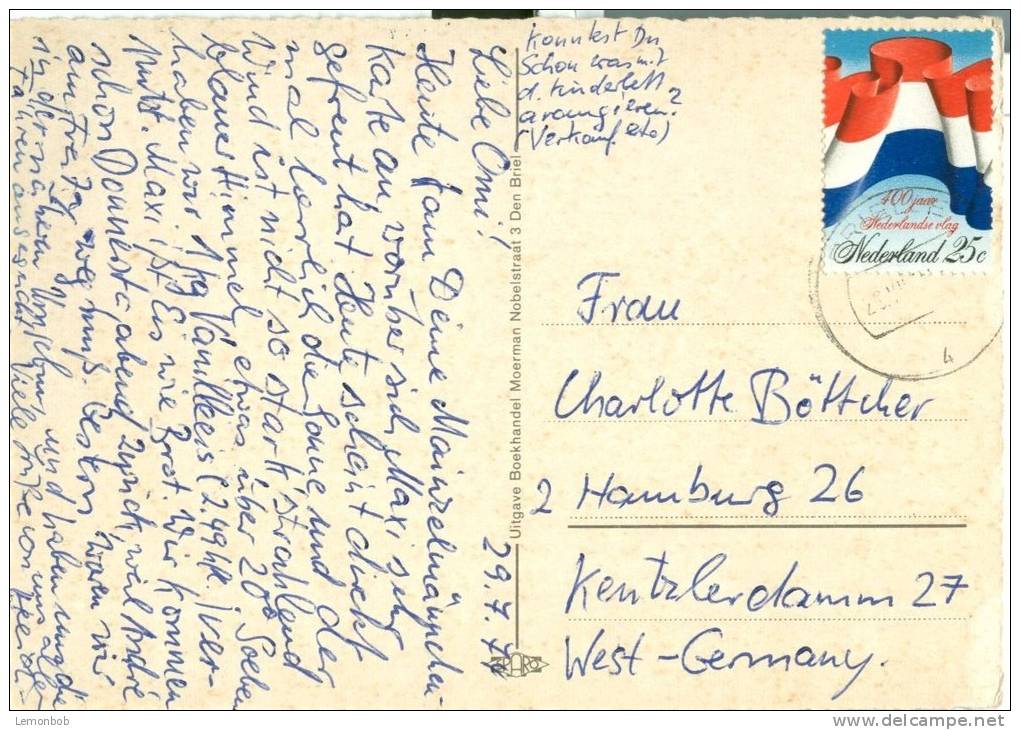 29.7.72
Liebe Omi!
Heute kam Deine Mainzelmännchen-
Karte an, worüber sich Maxi sehr
gefreut hat. Heute scheint direkt
mal herrlich die Sonne und der
Wind ist nicht so stark, strahlend
blauer Himmel, etwas über 20° Soeben
haben wir 1 kg Vanilleeis (2.49 hfl.) ver-
putzt. Maxi ißt Eis wie Brot. Wir kommen
schon Donnerstagabend zurück, weil André
am Freitag weg muß. Gestern waren wir
in der näheren Umgebung und haben uns die
Fähren angesehen. Viele Grüße von uns allen
konntest Du
Schon was mit
d. Kinderbett
arangieren?
(Verkauf etc)
Uitgave Boekhandel Moerman Nobelstraat 3 Den Briel
SPARO
400 jaar
Nederlandse vlag
Nederland 25c
4
Frau
Charlotte Böttcher
2 Hamburg 26
Kentzlerdamm 27
West-Germany.
Lemonbob
www.delcampe.net